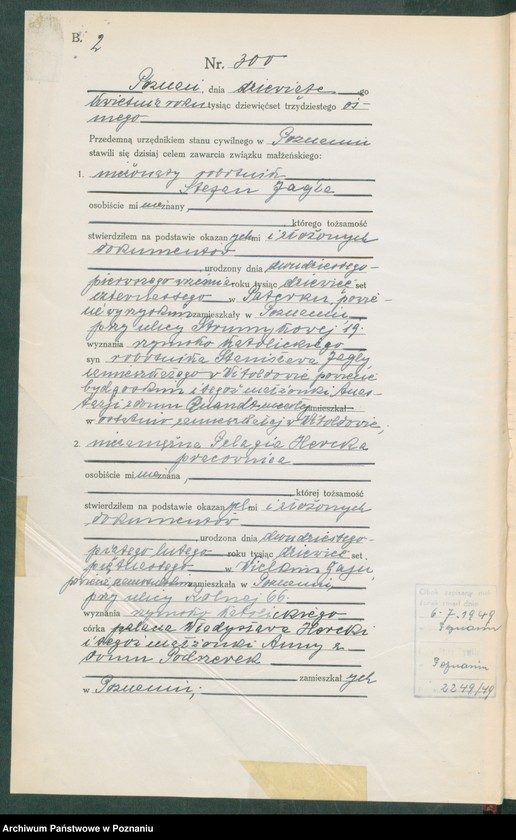 B.
2
Nr. 300
Poznań, dnia dziewiątego
kwietnia roku tysiąc dziewięćset trzydziestego ós-
mego
Przedemną urzędnikiem stanu cywilnego w Poznaniu
stawili się dzisiaj celem zawarcia związku małżeńskiego:
1. nieżonaty robotnik
Stefan Jagła
osobiście mi nieznany,
którego tożsamość
stwierdziłem na podstawie okazanych mi i złożonych
dokumentów
, urodzony dnia dwudziestego-
pierwszego września roku tysiąc dziewięć set
czternastego w powie-
cie wyrzyskim zamieszkały w Poznaniu
przy ulicy Strumykowej 19.
wyznania rzymsko katolickiego
syn robotnika Stanisława Jagły
zamieszkałego w Witoldowie powiecie
bydgoskim i tegoż małżonki Anas-
tazji z domu zamieszkał
w ostatnio zamieszkałej w Witoldowie,
2. niezamężna Pelagia Horcka
pracownica
osobiście mi nieznana,
której tożsamość
stwierdziłem na podstawie okazanych mi i złożonych
dokumentów
, urodzona dnia dwudziestego-
piątego lutego roku tysiąc dziewięć set
piętnastego w Wielkim Gaju
powiecie zamieszkała w Poznaniu,
przy ulicy Rolnej 66.
wyznania rzymsko katolickiego
córka palacza Władysława Horcki
i tegoż małżonki Anny z
domu
zamieszkałych
w Poznaniu;
6.7.1949
Poznaniu
Poznaniu
2249/49
Archiwum Państwowe w Poznaniu